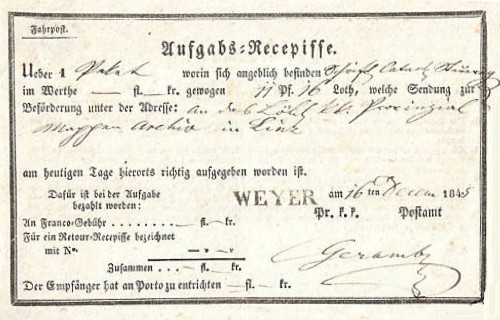 Fahrpost.
Aufgabs-Recepisse.
Ueber 1 Paket worin sich angeblich befinden Schrift. Catast.
im Werthe — fl. — kr. gewogen 11 Pf. 16 Loth, welche Sendung zur
Beförderung unter der Adresse: An das Löbl. kk. Provinzial
Mappen Archiv in Linz
am heutigen Tage hierorts richtig aufgegeben worden ist.
Dafür ist bei der Aufgabe
bezahlt worden:
WEYER am 16ten Decem 1845
Pr. k. k. Postamt
An Franco-Gebühr . . . . . . . — fl. — kr.
Für ein Retour-Recepisse bezeichnet
mit No. — „ — „
Zusammen . . . . — fl. — kr.
Der Empfänger hat an Porto zu entrichten — fl. — kr.